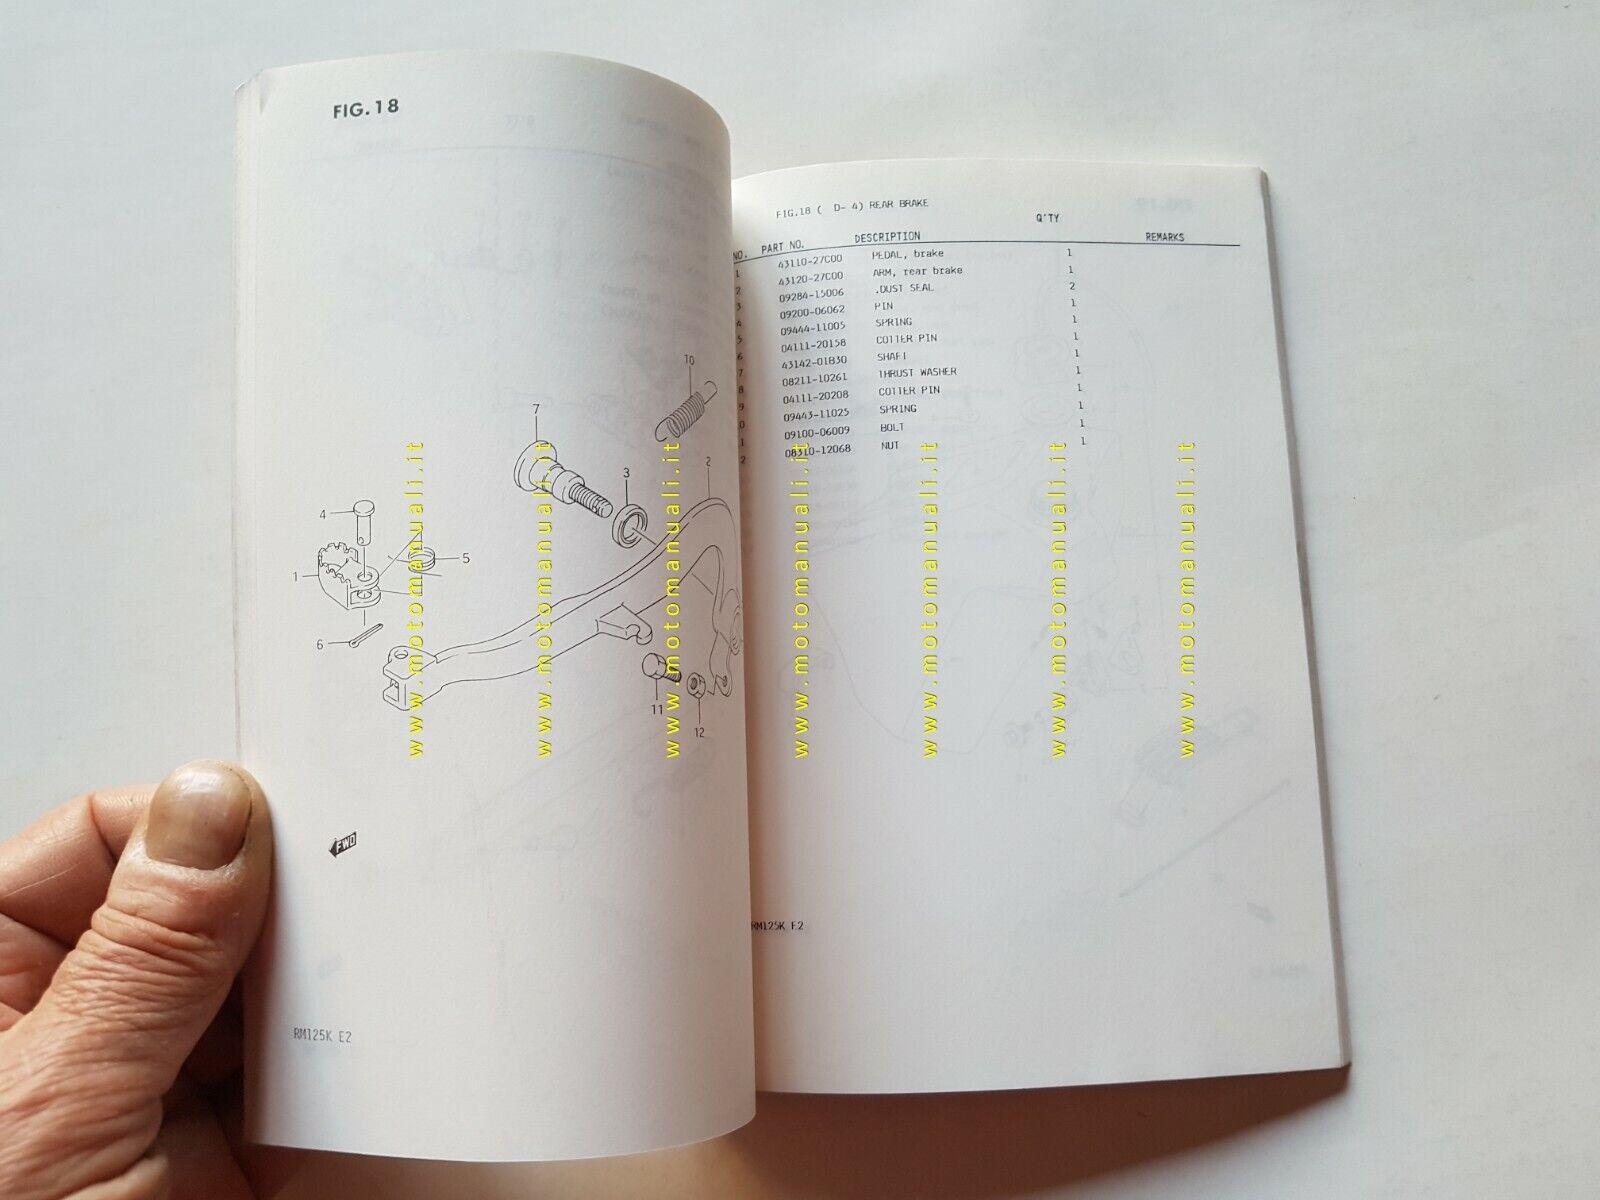 FIG.18
10
7
3
2
4
5
1
6
11
12
FWD
RM125K E2
FIG.18 ( D- 4) REAR BRAKE
NO. PART NO. DESCRIPTION Q'TY REMARKS
1 43110-27C00 PEDAL, brake 1
2 43120-27C00 ARM, rear brake 1
3 09284-15006 .DUST SEAL 2
4 09200-06062 PIN 1
5 09444-11005 SPRING 1
6 04111-20158 COTTER PIN 1
7 43142-01B30 SHAFT 1
8 08211-10261 THRUST WASHER 1
9 04111-20208 COTTER PIN 1
0 09443-11025 SPRING 1
1 09100-06009 BOLT 1
2 08310-12068 NUT 1
RM125K E2
www.motomanuali.it
www.motomanuali.it
www.motomanuali.it
www.motomanuali.it
www.motomanuali.it
www.motomanuali.it
www.motomanuali.it